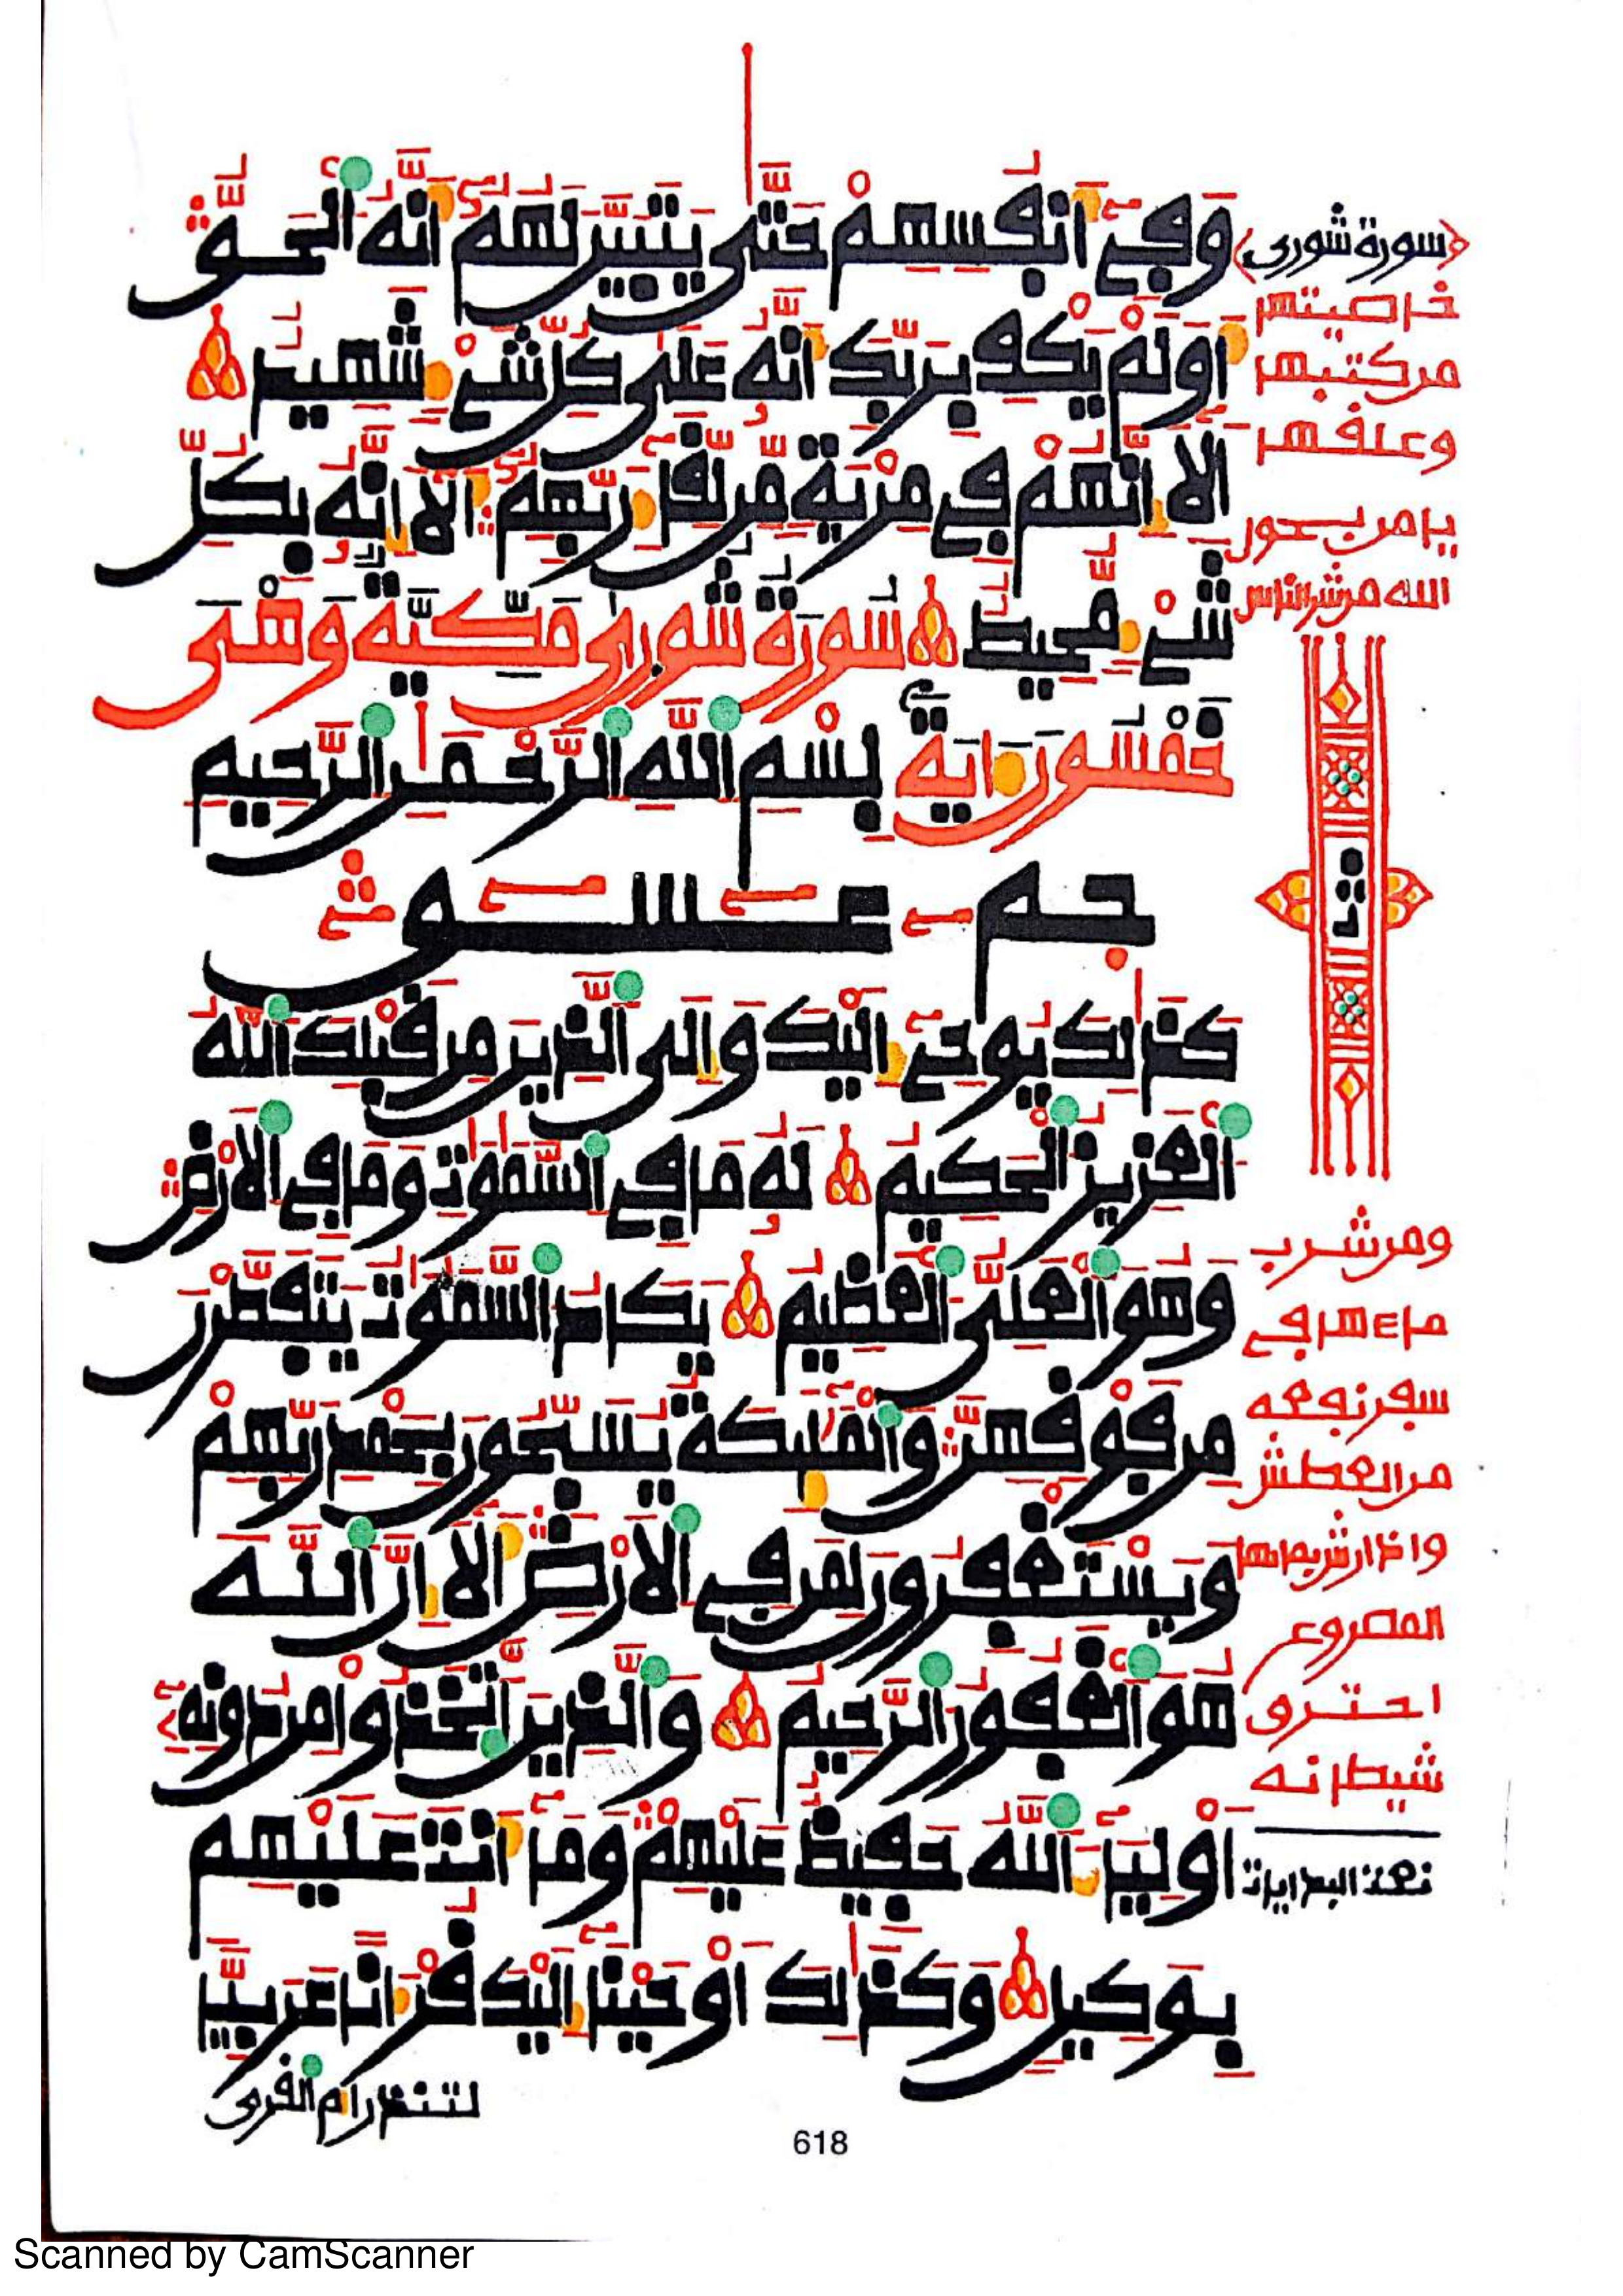 وَفِے أَنفُسِهِمْ حَتَّىٰ يَتَبَيَّنَ لَهُمُۥٓ أَنَّهُ اُ۬لْحَقُّ
أَوَلَمْ يَكْفِ بِرَبِّكَ أَنَّهُۥ عَلَىٰ كُلِّ شَےْءٖ شَهِيدٌ
أَلَآ إِنَّهُمْ فِے مِرْيَةٖ مِّن لِّقَآءِ رَبِّهِمُۥٓ أَلَآ إِنَّهُۥ بِكُلِّ
شَےْءٖ مُّحِيطٌ سُورَةُ شُورَىٰ مَكِّيَّةٌ وَهْيَ
خَمْسُونَ ءَايَةً بِسْمِ اِ۬للَّهِ اِ۬لرَّحْمَٰنِ اِ۬لرَّحِيمِ
حم عسق
كَذَٰلِكَ يُوحِےٓ إِلَيْكَ وَإِلَى اَ۬لذِينَ مِن قَبْلِكَ اَ۬للَّهُ
اُ۬لْعَزِيزُ اُ۬لْحَكِيمُ لَهُۥ مَا فِے اِ۬لسَّمَٰوَٰتِ وَمَا فِے اِ۬لَارْضِ
وَهُوَ اَ۬لْعَلِىُّ اُ۬لْعَظِيمُ يَكَادُ اُ۬لسَّمَٰوَٰتُ يَتَفَطَّرْنَ
مِن فَوْقِهِنَّ وَالْمَلَٰٓئِكَةُ يُسَبِّحُونَ بِحَمْدِ رَبِّهِمْ
وَيَسْتَغْفِرُونَ لِمَن فِے اِ۬لَارْضِ أَلَآ إِنَّ اَ۬للَّهَ
هُوَ اَ۬لْغَفُورُ اُ۬لرَّحِيمُ وَالذِينَ اَ۪تَّخَذُوا مِن دُونِهِۦٓ
أَوْلِيَآءَ اَ۬للَّهُ حَفِيظٌ عَلَيْهِمْ وَمَآ أَنتَ عَلَيْهِم
بِوَكِيلٖ وَكَذَٰلِكَ أَوْحَيْنَآ إِلَيْكَ قُرْءَاناً عَرَبِيّاً
لتنذر أم القرى
سورة شورى
خاصيتها
من كتبها
وعلقها
يامن بحور
الله من شر الناس
ومن شرب
ماءها في
سفر نفعه
من العطش
وإذا رش بمائها
المصروع
احترق
شيطانه
618
Scanned by CamScanner